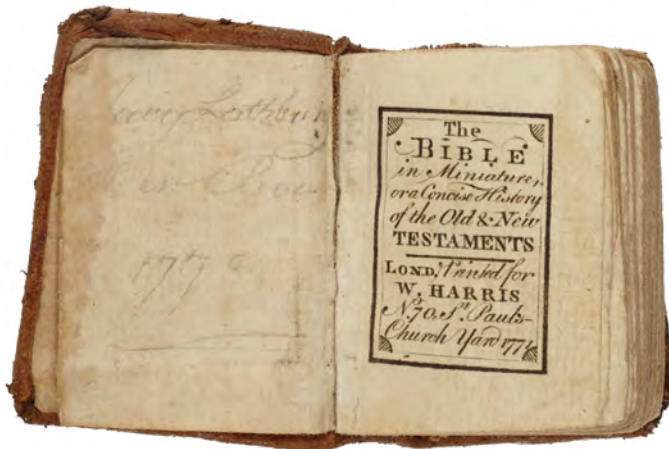 Lathbury
The
BIBLE
in Miniature,
or a Concise History
of the Old & New
TESTAMENTS
LOND: Printed for
W. HARRIS
No. 70, St. Pauls
Church Yard 1774